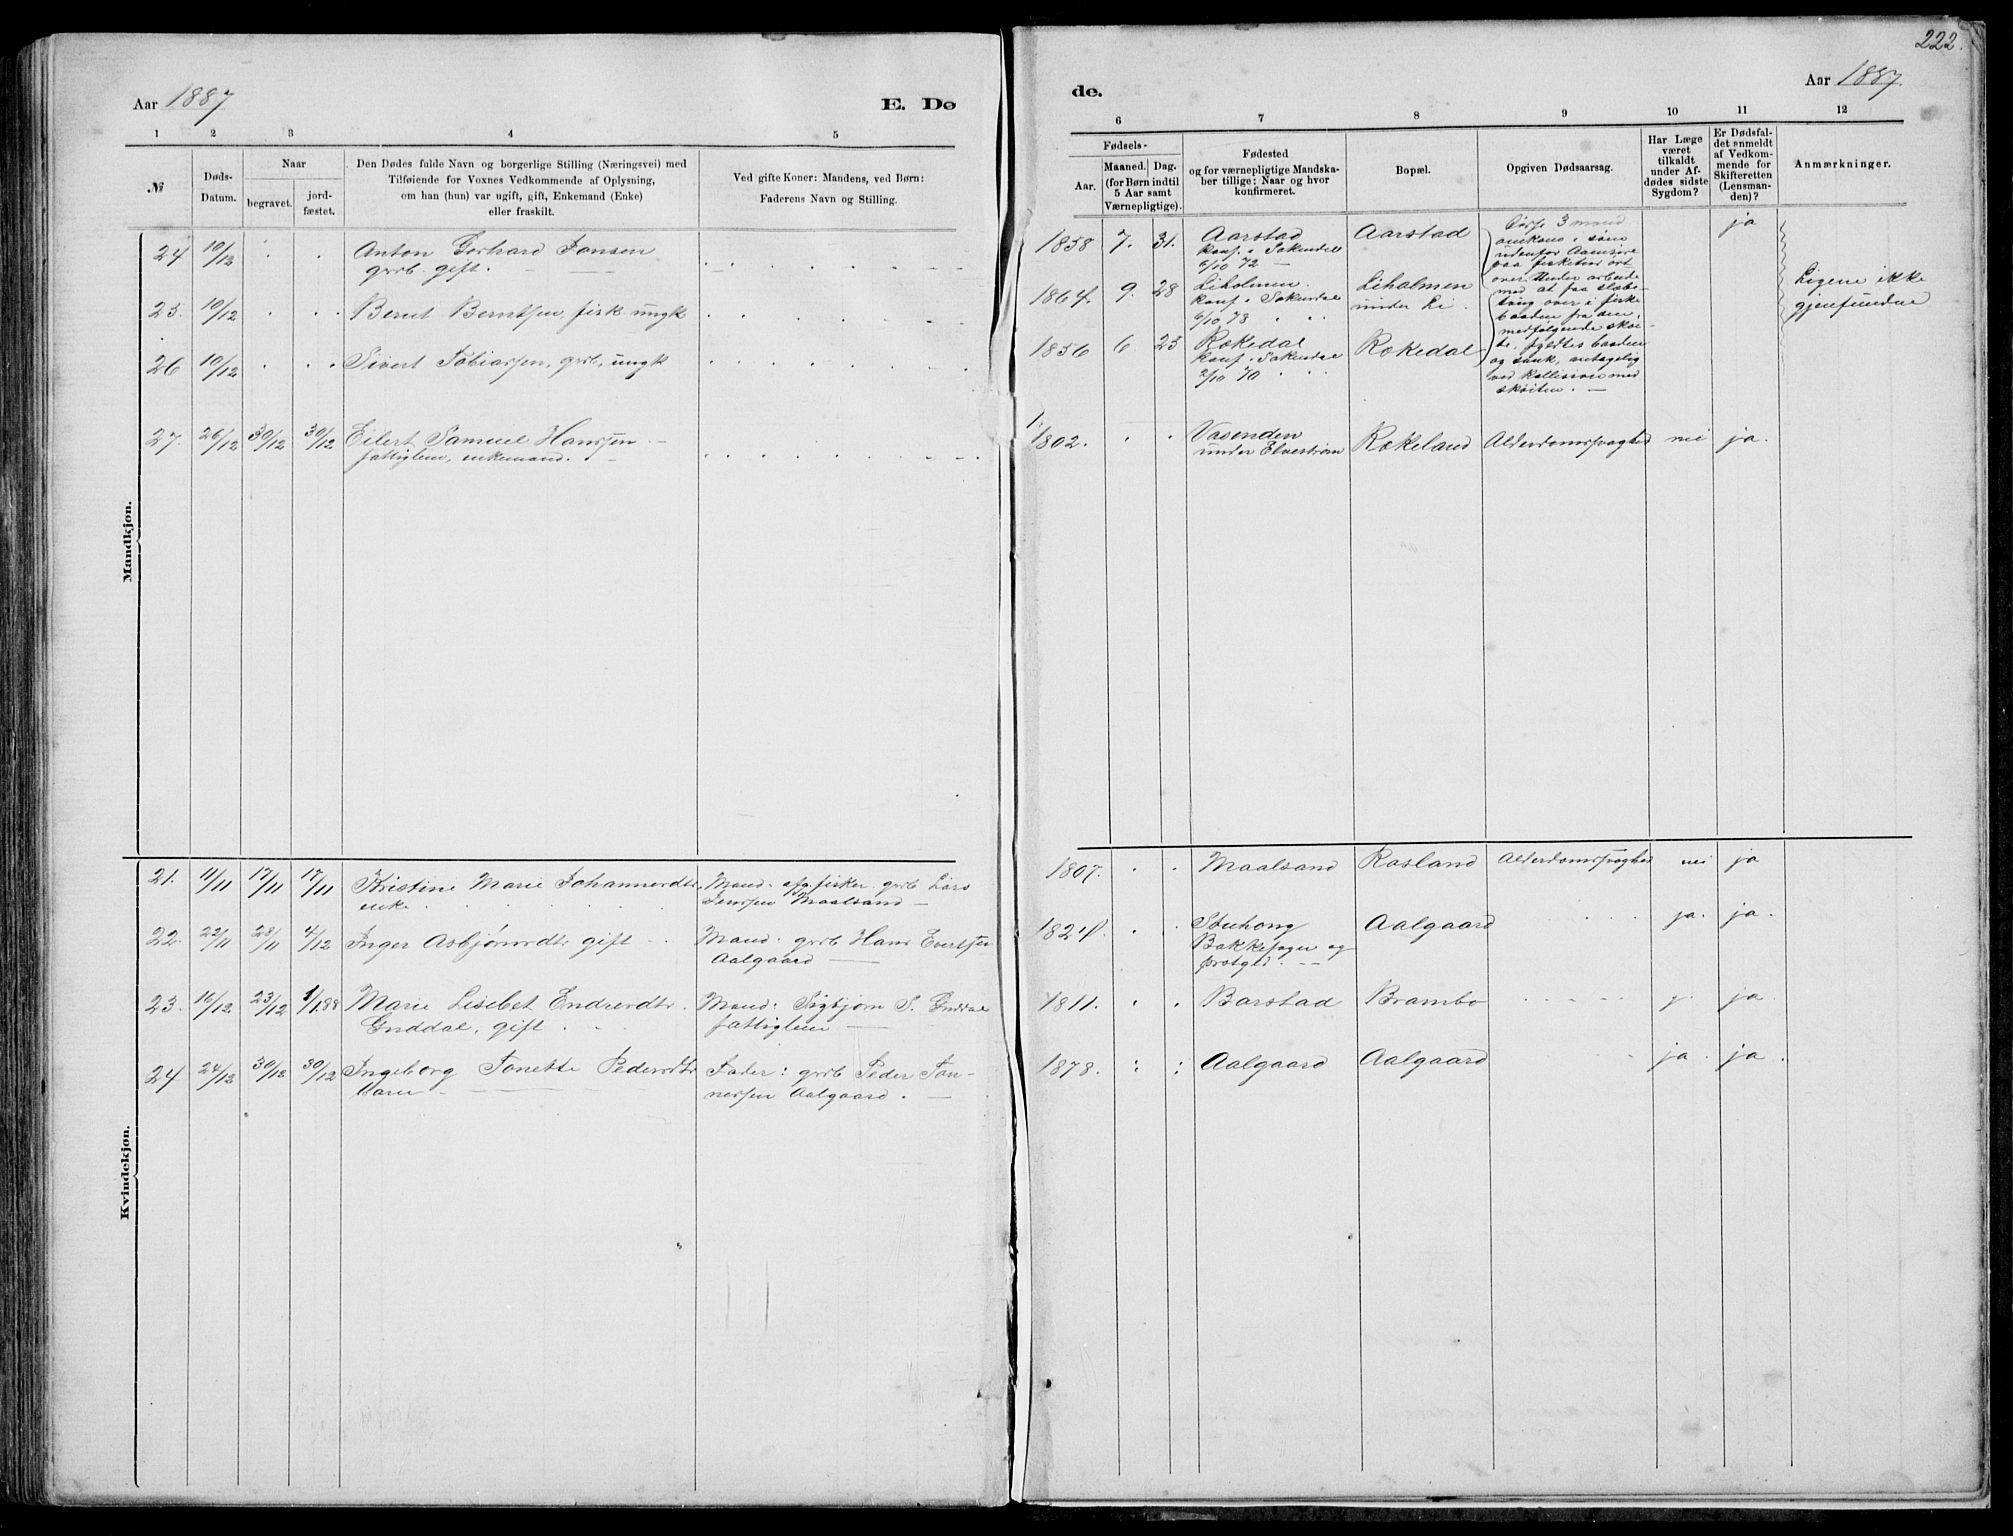 222.
Aar 1887
E. Dø
de.
Aar 1887.
1 2 3 4 5
6 7 8 9 10 11 12
№
Døds-
Datum.
Naar
begravet.
jord-
fæstet.
Den Dødes fulde Navn og borgerlige Stilling (Næringsvei) med
Tilføiende for Voxnes Vedkommende af Oplysning,
om han (hun) var ugift, gift, Enkemand (Enke)
eller fraskilt.
Ved gifte Koner: Mandens, ved Børn:
Faderens Navn og Stilling.
Fødsels-
Aar.
Maaned. Dag.
(for Børn indtil
5 Aar samt
Værnepligtige).
Fødested
og for værnepligtige Mandska-
ber tillige: Naar og hvor
konfirmeret.
Bopæl.
Opgiven Dødsaarsag.
Har Læge
været
tilkaldt
under Af-
dødes sidste
Sygdom?
Er Dødsfal-
det anmeldt
af Vedkom-
mende for
Skifteretten
(Lensman-
den)?
Anmærkninger.
Mandkjøn.
24 10/12 Anton Gerhard Jansen
grdb. gift.
1858 7. 31. Aarstad
konf. i Sokndal
6/10 72
Aarstad
ja
25. 10/12 Bernt Berntsen, fisk. ungk
1864. 9. 28 Liholmen.
konf. i Sokndal
6/10 78
Liholmen
under Li
26 10/12 Sivert Tobiassen, grdb, ungk
1856 6. 23 Rækedal
konf. i Sokndal
2/10 70
Rækedal
3 mand
omkom i søen
udenfor
paa
over. Under arbeide
med at faa slæbe-
over i fiske
baaden fra den
medfølgende skøi-
te, fyldtes baaden
og sank, antagelig
ved kollision med
skøiten.
Ligene ikke
gjenfundne
27. 26/12 30/12 30/12 Eilert Samuel Hanssen
fattiglem, enkemand.
1802. Vasenden
under Elvestrøm
Rækeland Alderdomssvaghed nei ja.
Kvindekjøn.
21. 11/11 17/11 17/11 Kristine Marie Johannesdtr.
enke
Mand: afg. fisker. grdb Lars
Jenssen Maalsand
1807. Maalsand Rosland Alderdomssvaghed nei ja
22. 22/11 28/11 4/12 Inger Asbjørnsdtr gift
Mand: grdb Hans Evertsen
Aalgaard
1824. Stuhong
Bakkesogn og
prstgld.
Aalgaard ja. ja.
23. 16/12 23/12 1/1 88 Marie Lisebet Endresdtr.
Guddal, gift
Mand: Sigbjørn S. Guddal
fattiglem
1811. Barstad Brambo j. ja.
24 24/12 30/12 30/12 Ingeborg Tonette Pedersdtr
barn
Fader: grdb Peder Tøn-
nessen Aalgaard.
1878. Aalgaard Aalgaard ja. ja.